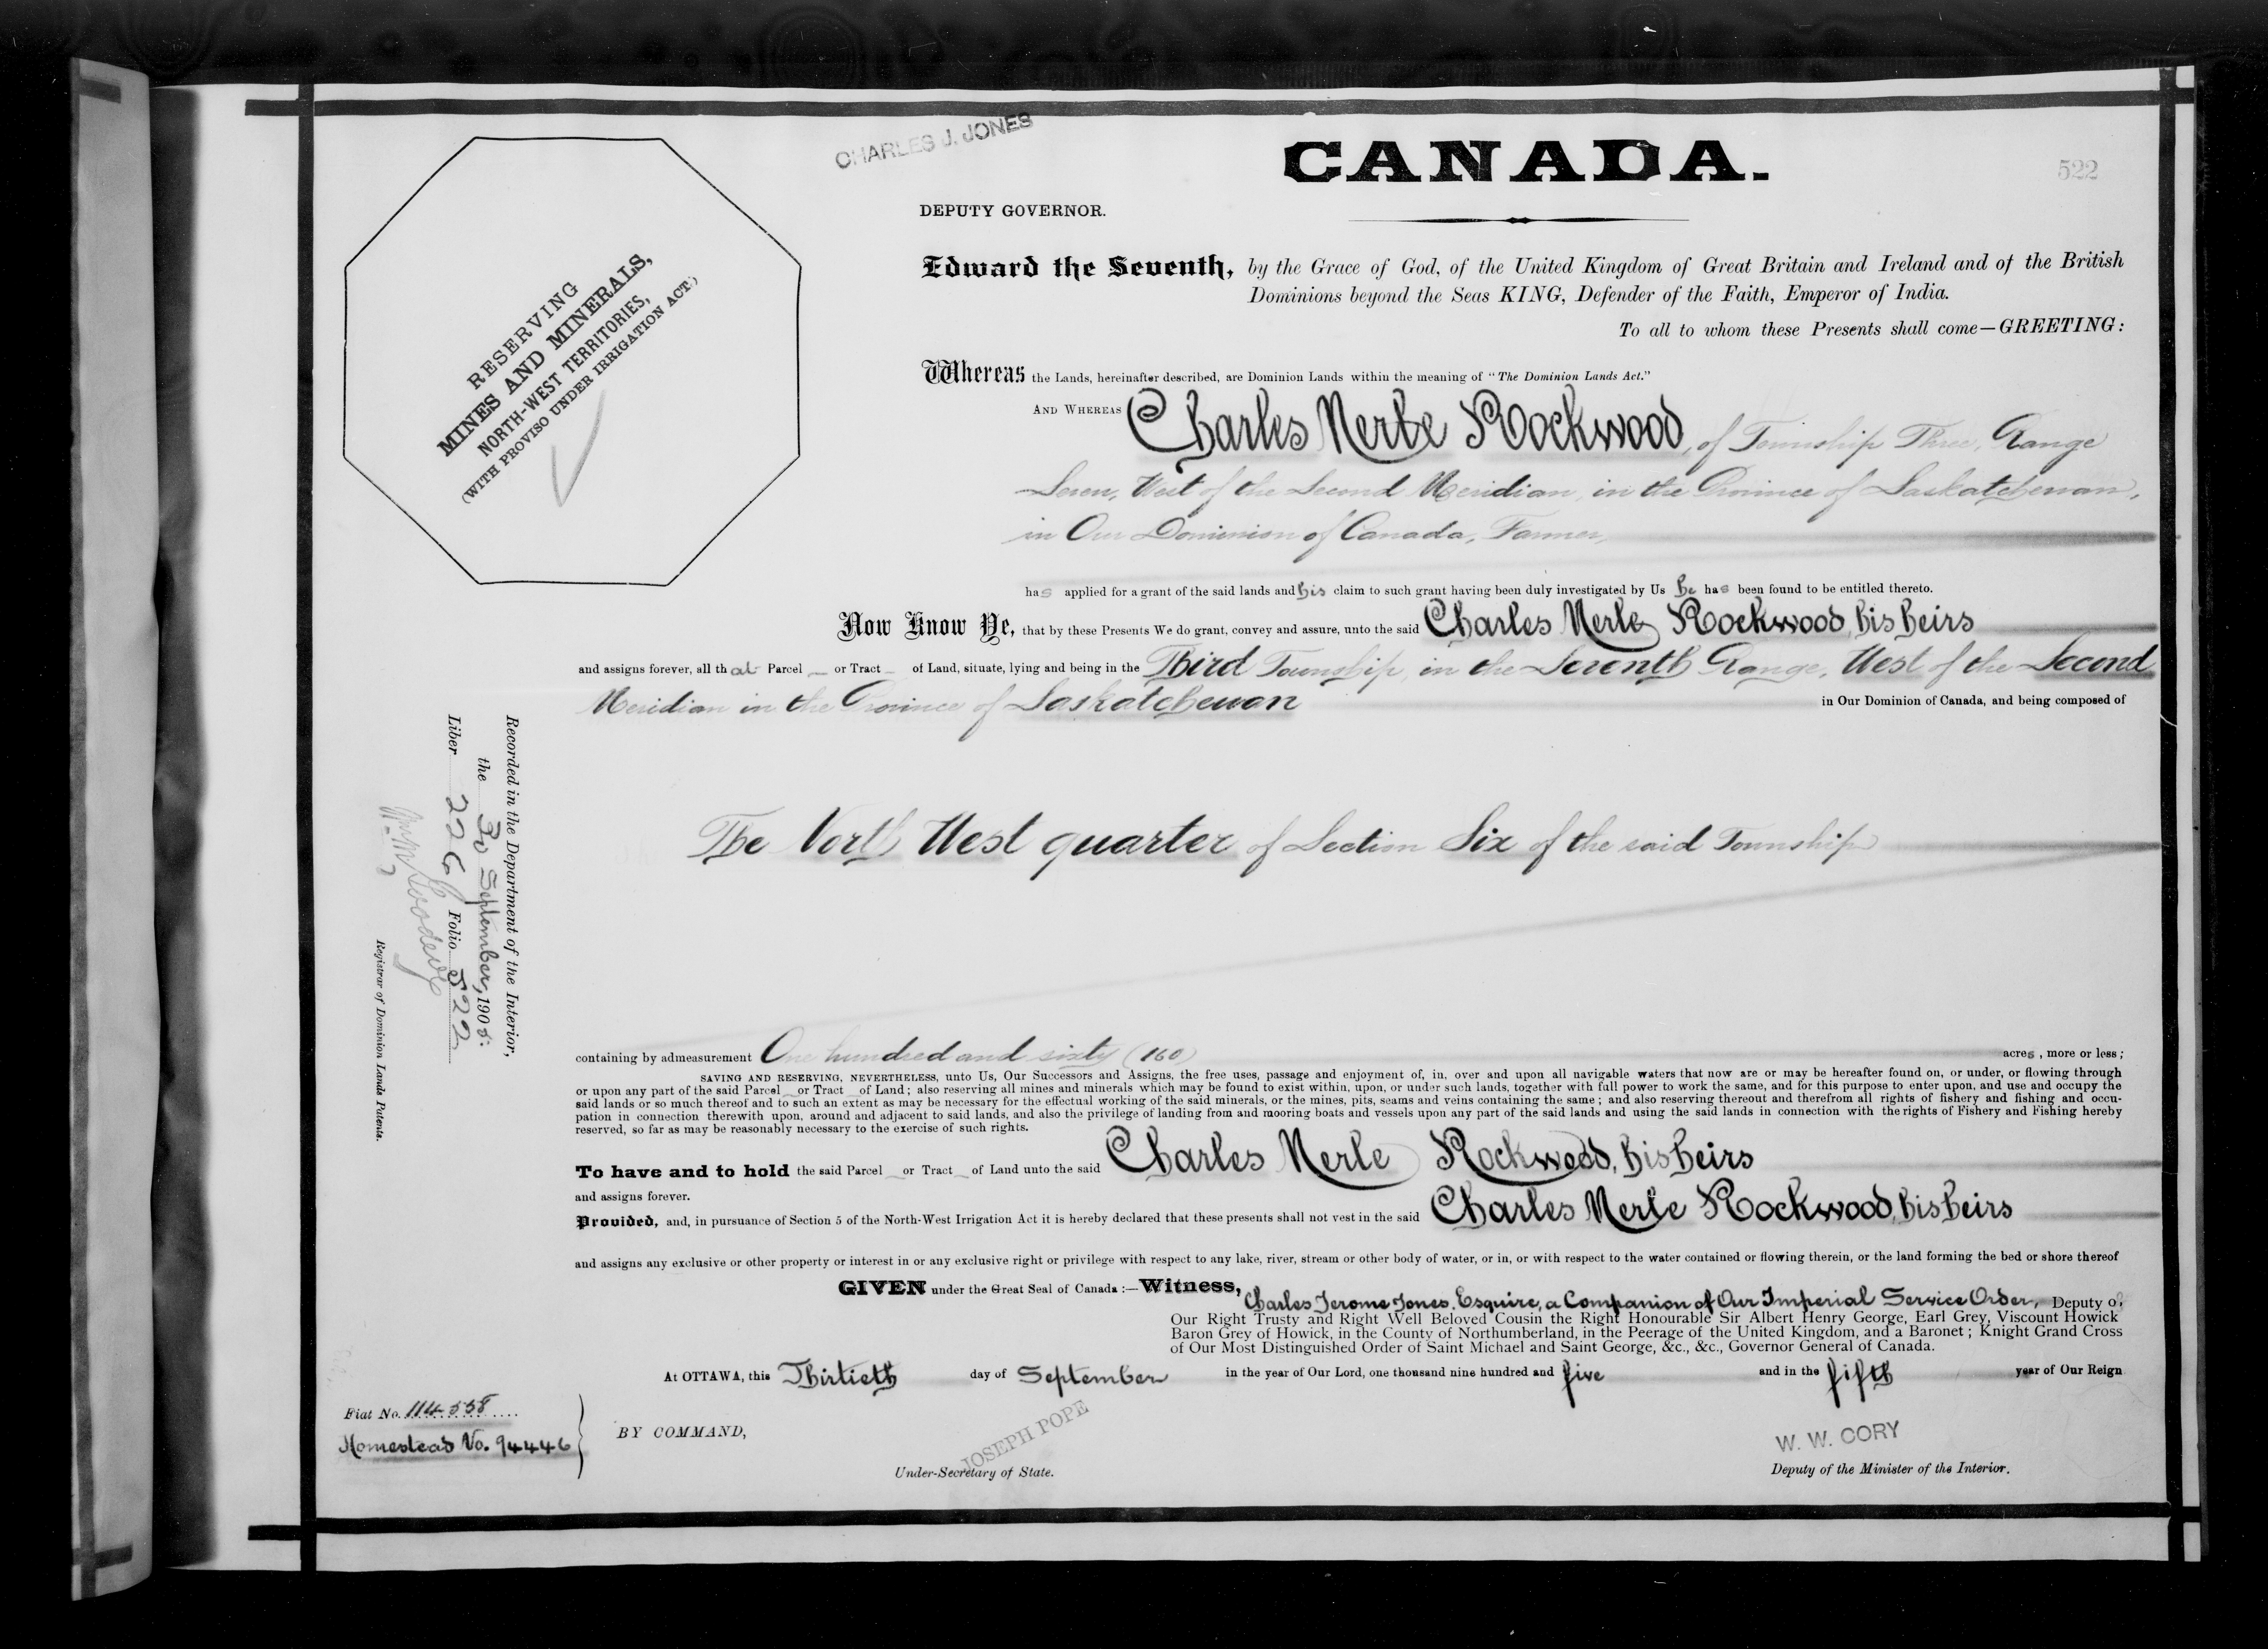 CHARLES J. JONES
CANADA.
522
DEPUTY GOVERNOR.
RESERVING
MINES AND MINERALS,
NORTH-WEST TERRITORIES,
(WITH PROVISO UNDER IRRIGATION ACT.)
Edward the Seventh, by the Grace of God, of the United Kingdom of Great Britain and Ireland and of the British
Dominions beyond the Seas KING, Defender of the Faith, Emperor of India.
To all to whom these Presents shall come—GREETING:
Whereas the Lands, hereinafter described, are Dominion Lands within the meaning of "The Dominion Lands Act."
AND WHEREAS Charles Merle Rockwood, of Township Three, Range
Seven, West of the Second Meridian, in the Province of Saskatchewan,
in Our Dominion of Canada, Farmer,
has applied for a grant of the said lands and his claim to such grant having been duly investigated by Us he has been found to be entitled thereto.
Now Know Ye, that by these Presents We do grant, convey and assure, unto the said Charles Merle Rockwood, his heirs
and assigns forever, all that Parcel or Tract of Land, situate, lying and being in the Third Township, in the Seventh Range, West of the Second
Meridian in the Province of Saskatchewan in Our Dominion of Canada, and being composed of
The North West quarter of Section Six of the said Township
containing by admeasurement One hundred and sixty (160) acres, more or less;
SAVING AND RESERVING, NEVERTHELESS, unto Us, Our Successors and Assigns, the free uses, passage and enjoyment of, in, over and upon all navigable waters that now are or may be hereafter found on, or under, or flowing through
or upon any part of the said Parcel or Tract of Land; also reserving all mines and minerals which may be found to exist within, upon, or under such lands, together with full power to work the same, and for this purpose to enter upon, and use and occupy the
said lands or so much thereof and to such an extent as may be necessary for the effectual working of the said minerals, or the mines, pits, seams and veins containing the same; and also reserving thereout and therefrom all rights of fishery and fishing and occu-
pation in connection therewith upon, around and adjacent to said lands, and also the privilege of landing from and mooring boats and vessels upon any part of the said lands and using the said lands in connection with the rights of Fishery and Fishing hereby
reserved, so far as may be reasonably necessary to the exercise of such rights.
To have and to hold the said Parcel or Tract of Land unto the said Charles Merle Rockwood, his heirs
and assigns forever.
Provided, and, in pursuance of Section 5 of the North-West Irrigation Act it is hereby declared that these presents shall not vest in the said Charles Merle Rockwood, his heirs
and assigns any exclusive or other property or interest in or any exclusive right or privilege with respect to any lake, river, stream or other body of water, or in, or with respect to the water contained or flowing therein, or the land forming the bed or shore thereof
GIVEN under the Great Seal of Canada:—Witness, Charles Jerome Jones, Esquire, a Companion of Our Imperial Service Order, Deputy of
Our Right Trusty and Right Well Beloved Cousin the Right Honourable Sir Albert Henry George, Earl Grey, Viscount Howick
Baron Grey of Howick, in the County of Northumberland, in the Peerage of the United Kingdom, and a Baronet; Knight Grand Cross
of Our Most Distinguished Order of Saint Michael and Saint George, &c., &c., Governor General of Canada.
At OTTAWA, this Thirtieth day of September in the year of Our Lord, one thousand nine hundred and five and in the fifth year of Our Reign
Fiat No. 114558
Homestead No. 94446
BY COMMAND,
JOSEPH POPE
Under-Secretary of State.
W. W. CORY
Deputy of the Minister of the Interior.
Recorded in the Department of the Interior,
the 30 September, 1905.
Liber 226 Folio 522
Registrar of Dominion Lands Patents.